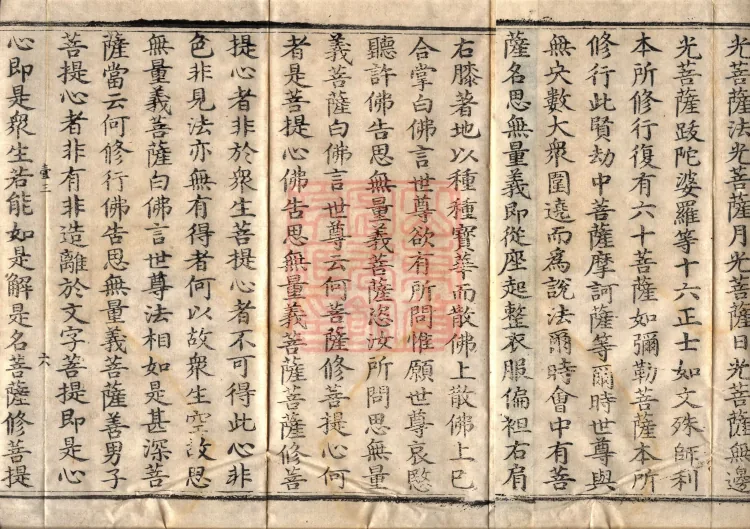 光菩薩法光菩薩月光菩薩日光菩薩無邊
光菩薩跋陀婆羅等十六正士如文殊師利
本所修行復有六十菩薩如彌勒菩薩本所
修行此賢劫中菩薩摩訶薩等爾時世尊與
無央數大衆圍遶而為説法爾時會中有菩
薩名思無量義即從座起整衣服偏袒右肩
右膝著地以種種寶華而散佛上散佛上已
合掌白佛言世尊欲有所問惟願世尊哀愍
聽許佛告思無量義菩薩恣汝所問思無量
義菩薩白佛言世尊云何菩薩修菩提心何
者是菩提心佛告思無量義菩薩菩薩修菩
提心者非於衆生菩提心者不可得此心非
色非見法亦無有得者何以故衆生空故思
無量義菩薩白佛言世尊法相如是甚深菩
薩當云何修行佛告思無量義菩薩善男子
菩提心者非有非造離於文字菩提即是心
心即是衆生若能如是解是名菩薩修菩提
壹三
六